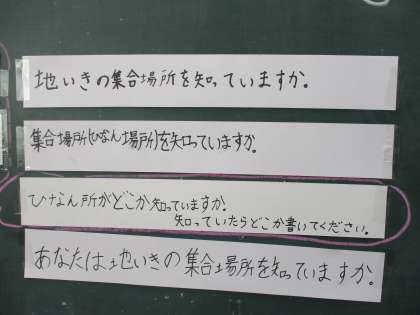 地いきの集合場所を知っていますか。
集合場所(ひなん場所)を知っていますか。
ひなん所がどこか知っていますか。
知っていたらどこか書いてください。
あなたは地いきの集合場所を知っていますか。